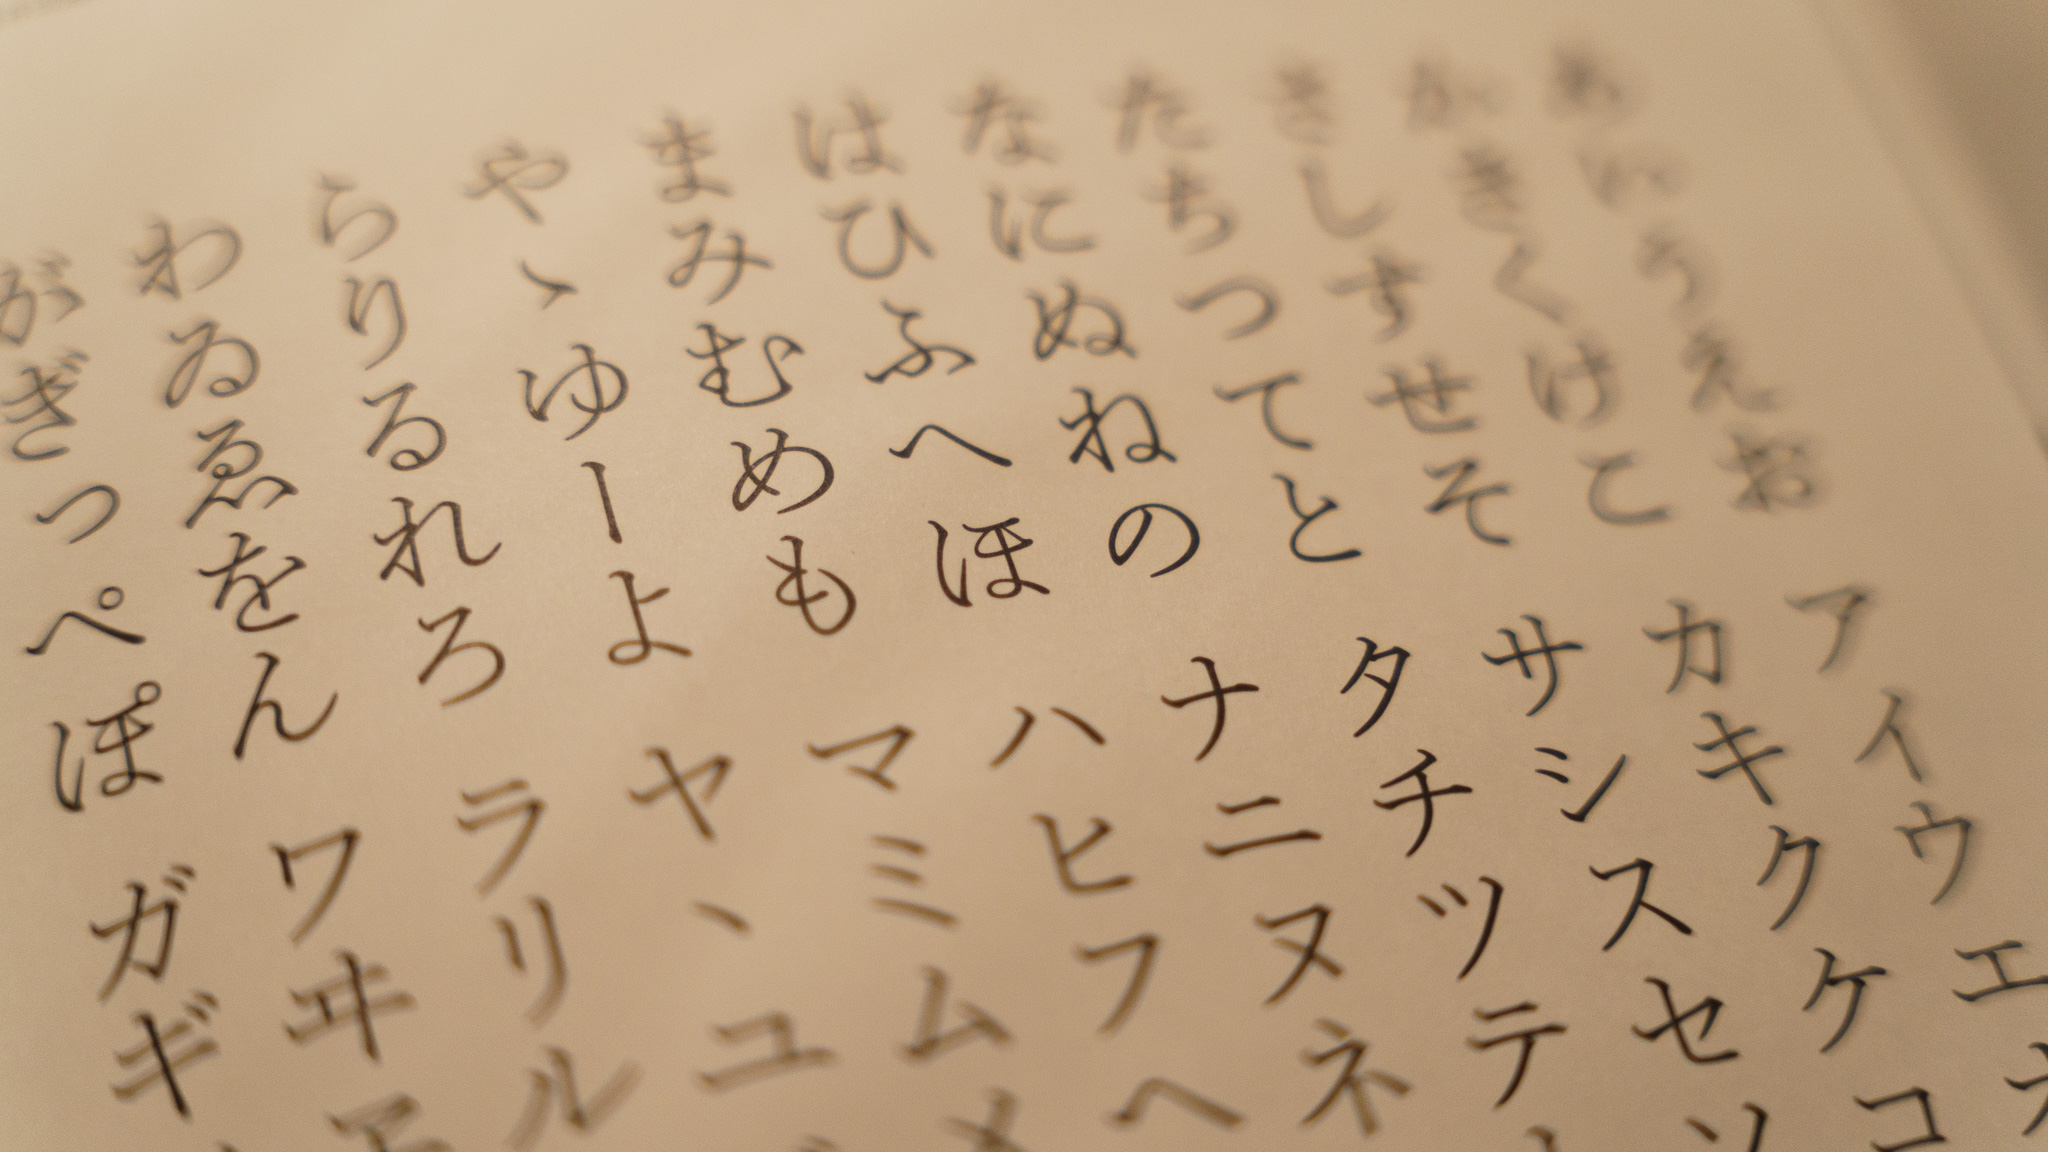 あいうえお
かきくけこ
さしすせそ
たちつてと
なにぬねの
はひふへほ
まみむめも
や、ゆーよ
らりるれろ
わゐゑをん
がぎっぺぽ
アイウエオ
カキクケコ
サシスセソ
タチツテ
ナニヌネ
ハヒフヘ
マミムメ
ヤ、ユ
ラリル
ワヰヱ
ガギ